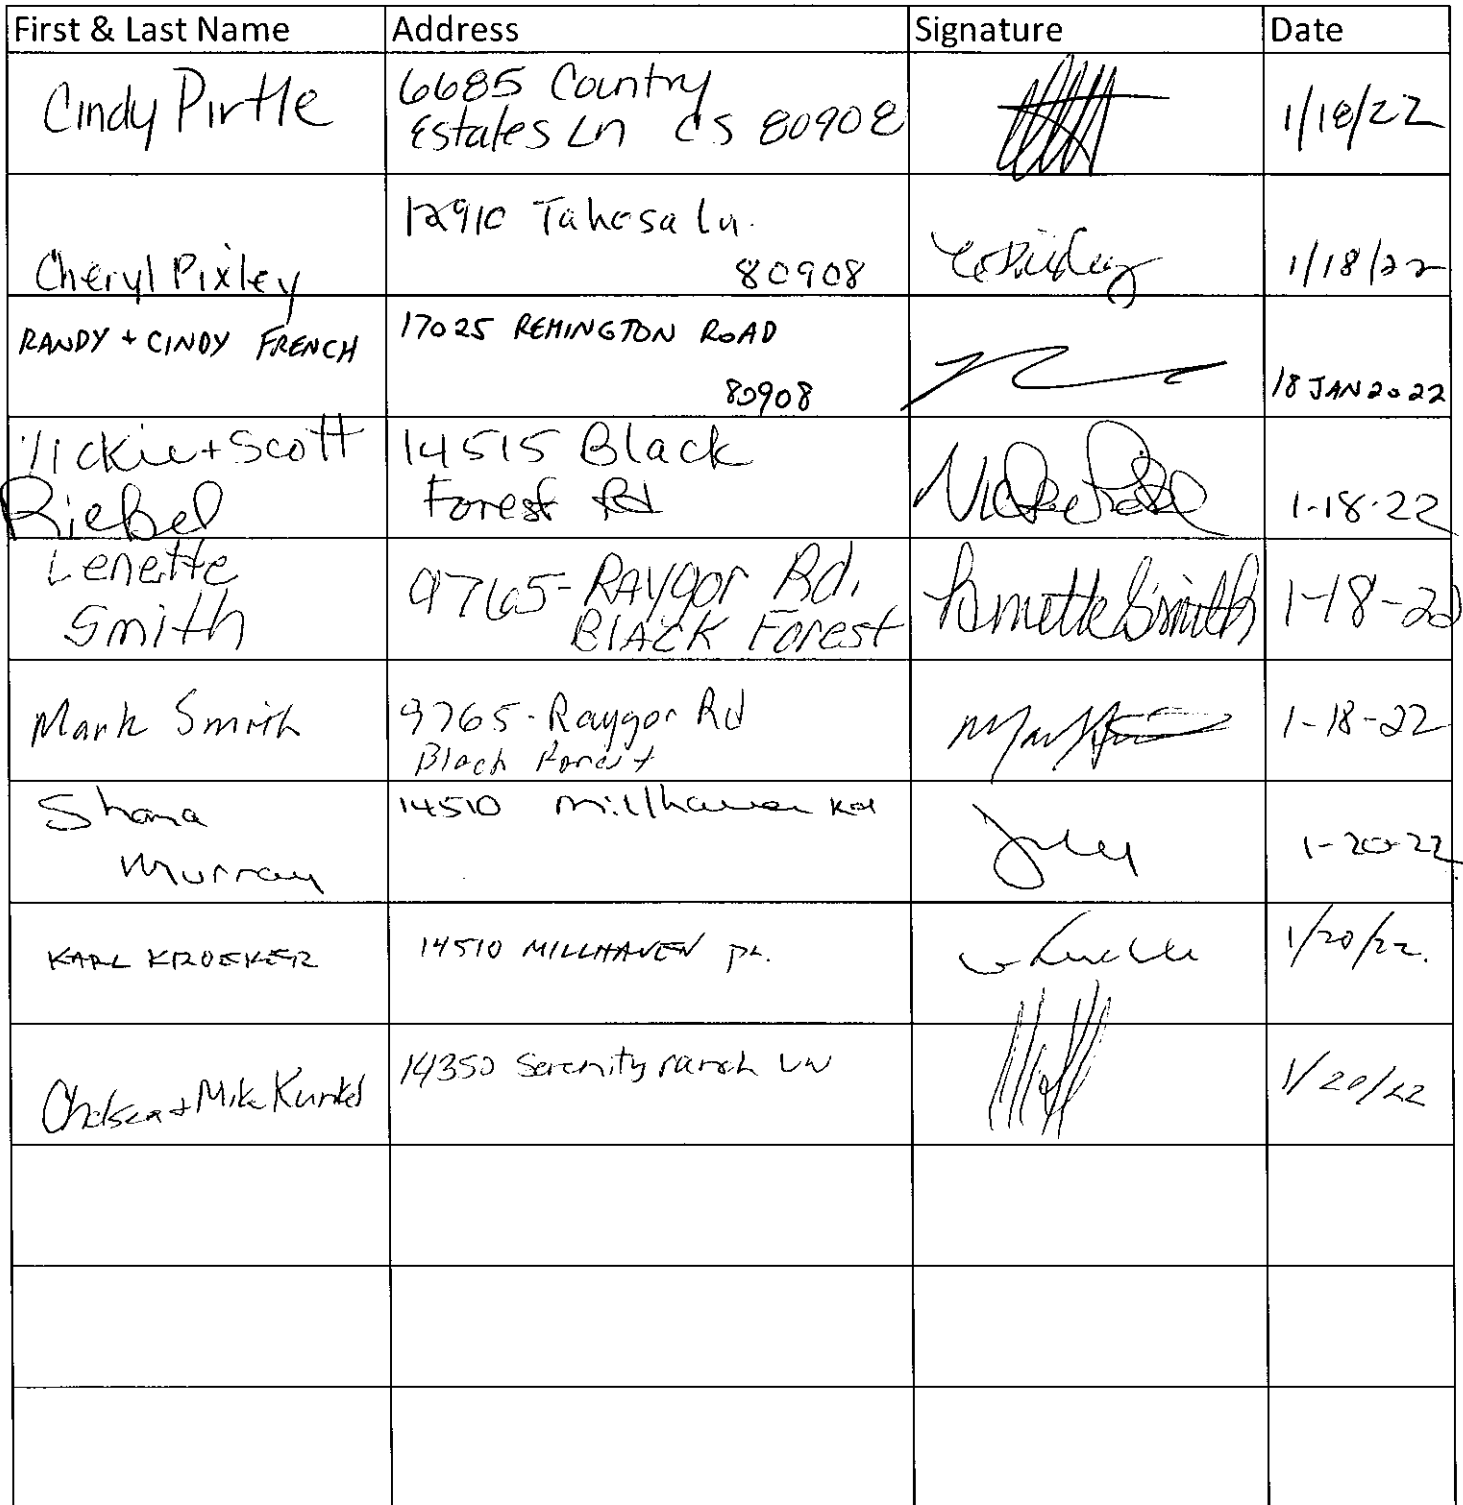 First & Last Name Address Signature Date
Cindy Pirtle 6685 Country
Estates Ln CS 80908 1/18/22
12910 Tahosa Ln.
Cheryl Pixley 80908 1/18/22
RANDY + CINDY FRENCH 17025 REMINGTON ROAD
80908 18 JAN 2022
Vickie + Scott 14515 Black
Riebel Forest Rd 1-18-22
Lenette 9765- Raygor Rd.
Smith BLACK Forest Lenette Smith 1-18-22
Mark Smith 9765- Raygor Rd 1-18-22
Black Forest
Shana 14510 Millhaven
Murray 1-20-22
KARL KROEKER 14510 MILLHAVEN PL. 1/20/22.
Chelsea + Mike Kunkel 14350 Serenity ranch LN 1/20/22